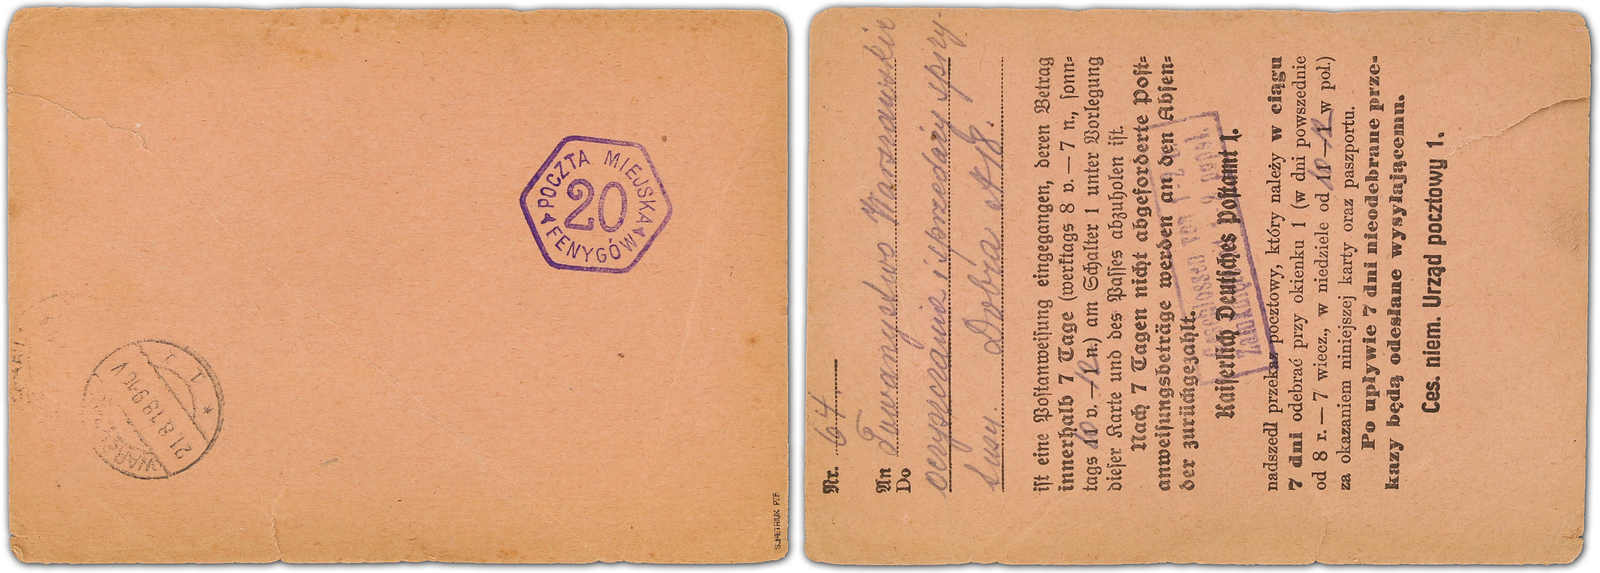 POCZTA MIEJSKA
20
FENYGÓW
21.8.18.9-10V
S.PETRIUK PZF
Nr. 64
An Towarzystwo Warszawskie
Do
oczyszczania i sprzedaży spiry-
tusu. Dobra
ist eine Postanweisung eingegangen, deren Betrag
innerhalb 7 Tage (werktags 8 v. — 7 n., sonn-
tags 10 v. — 12 n.) am Schalter 1 unter Vorlegung
dieser Karte und des Passes abzuholen ist.
Nach 7 Tagen nicht abgeforderte Post-
anweisungsbeträge werden an den Absen-
der zurückgezahlt.
Kaiserlich Deutsches Postamt 1.
Geschlossen von 1-2
Zamknięte
nadszedł przekaz pocztowy, który należy w ciągu
7 dni odebrać przy okienku 1 (w dni powszednie
od 8 r. — 7 wiecz., w niedziele od 10-12 w poł.)
za okazaniem niniejszej karty oraz paszportu.
Po upływie 7 dni nieodebrane prze-
kazy będą odesłane wysyłającemu.
Ces. niem. Urząd pocztowy 1.